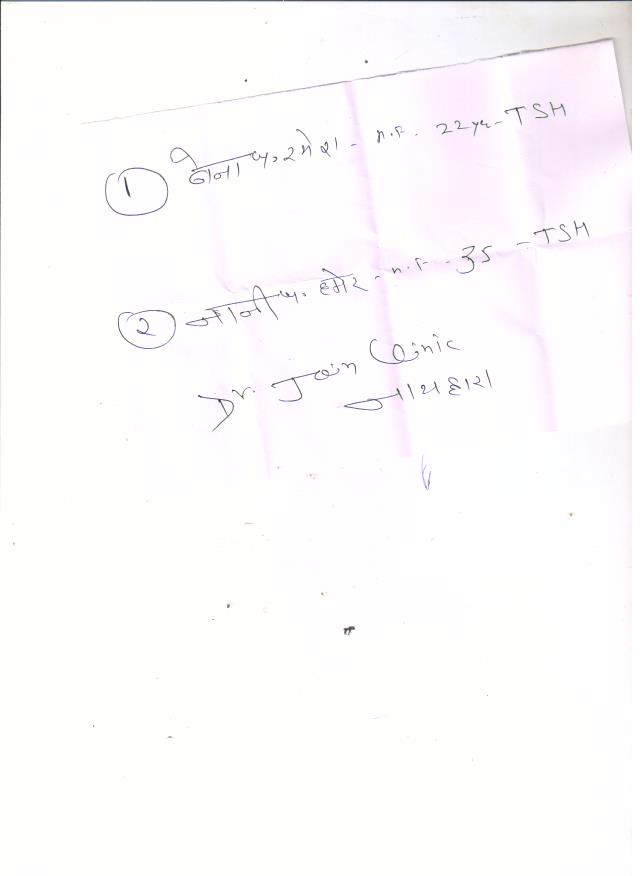 ① हेना प. रमेश - n.F. 22 yr - TSH
② नानी प. हमेर - n.F. 35 - TSH
Dr. Jain Clinic
नाथद्वारा